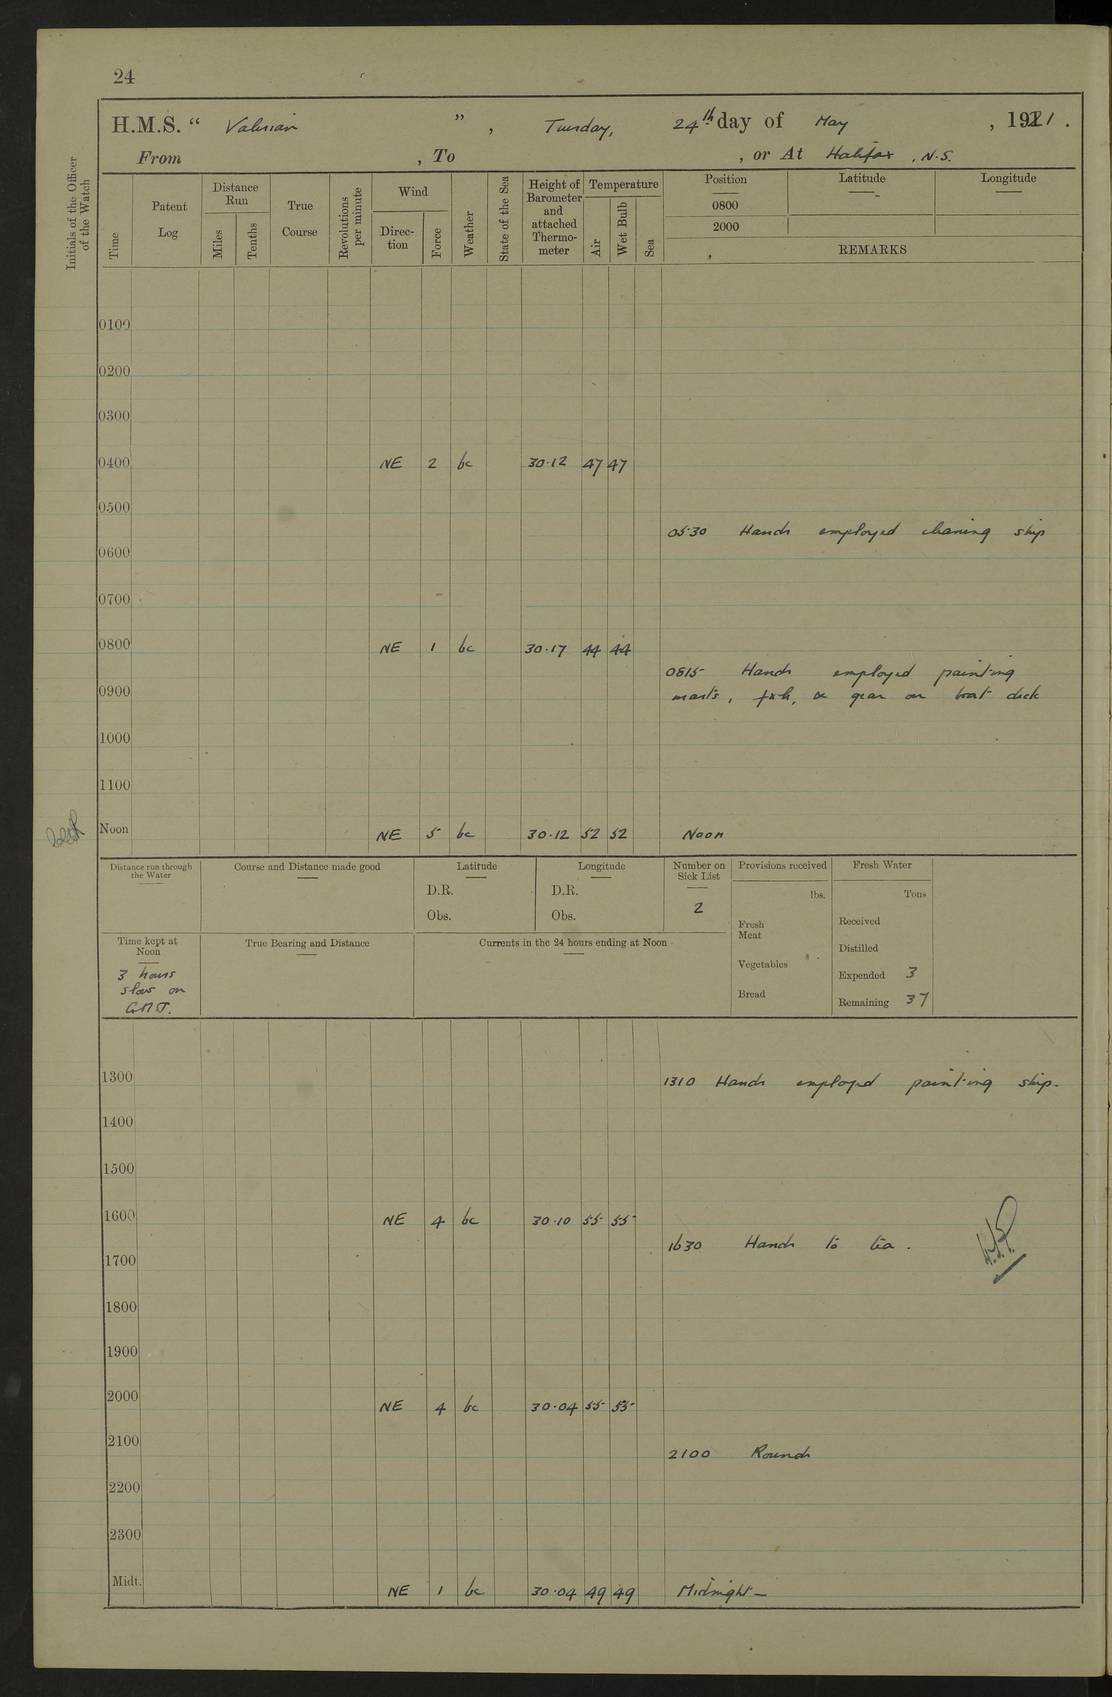 24
H.M.S. " Valerian ", Tuesday, 24th day of May, 1921.
From , To , or At Halifax, N.S.
Initials of the Officer of the Watch
Time
Patent Log
Distance Run
Miles
Tenths
True Course
Revolutions per minute
Wind
Direction
Force
Weather
State of the Sea
Height of Barometer and attached Thermometer
Temperature
Air
Wet Bulb
Sea
Position
Latitude
Longitude
0800
2000
REMARKS
0100
0200
0300
0400 NE 2 bc 30.12 47 47
0500
0530 Hands employed cleaning ship
0600
0700
0800 NE 1 bc 30.17 44 44
0815 Hands employed painting
0900 masts, & gear on boat deck
1000
1100
Noon NE 5 bc 30.12 52 52 Noon
Distance run through the Water
Course and Distance made good
Latitude
D.R.
Obs.
Longitude
D.R.
Obs.
Number on Sick List
2
Provisions received
lbs.
Fresh Meat
Vegetables
Bread
Fresh Water
Tons
Received
Distilled
Expended 3
Remaining 37
Time kept at Noon
3 hours
slow on
G.M.T.
True Bearing and Distance
Currents in the 24 hours ending at Noon
1300
1310 Hands employed painting ship.
1400
1500
1600 NE 4 bc 30.10 55 55
1630 Hands to tea.
1700
1800
1900
2000 NE 4 bc 30.04 55 53
2100
2100 Rounds
2200
2300
Midt. NE 1 bc 30.04 49 49 Midnight—